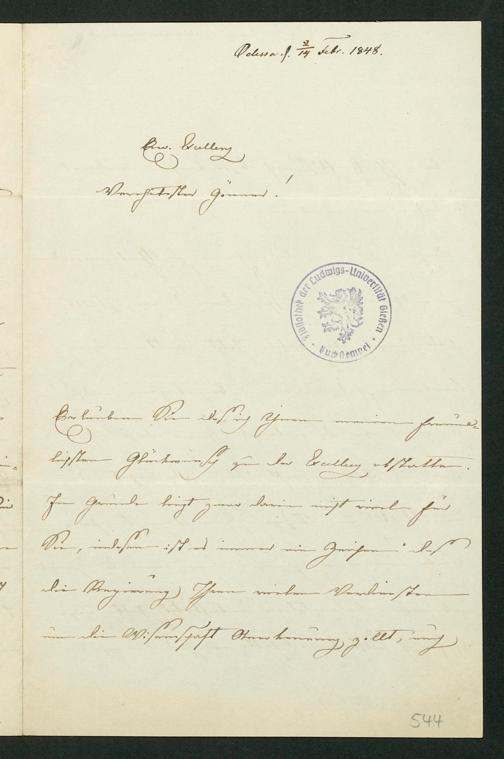 Odessa d. 2/14 Febr. 1848.
Ew. Excellenz
Verehrtester Gönner!
Bibliothek der Ludwigs-Universität Gießen
Buchstempel
Erlauben Sie daß ich Ihnen meinen freund-
lichsten Glückwunsch zu der Excellenz abstatte.
Im Grunde liegt zwar darin nicht viel für
Sie, indessen ist es immer ein Zeichen daß
die Regierung Ihren vielen Verdiensten
um die Wissenschaft Anerkennung zollt, und
544